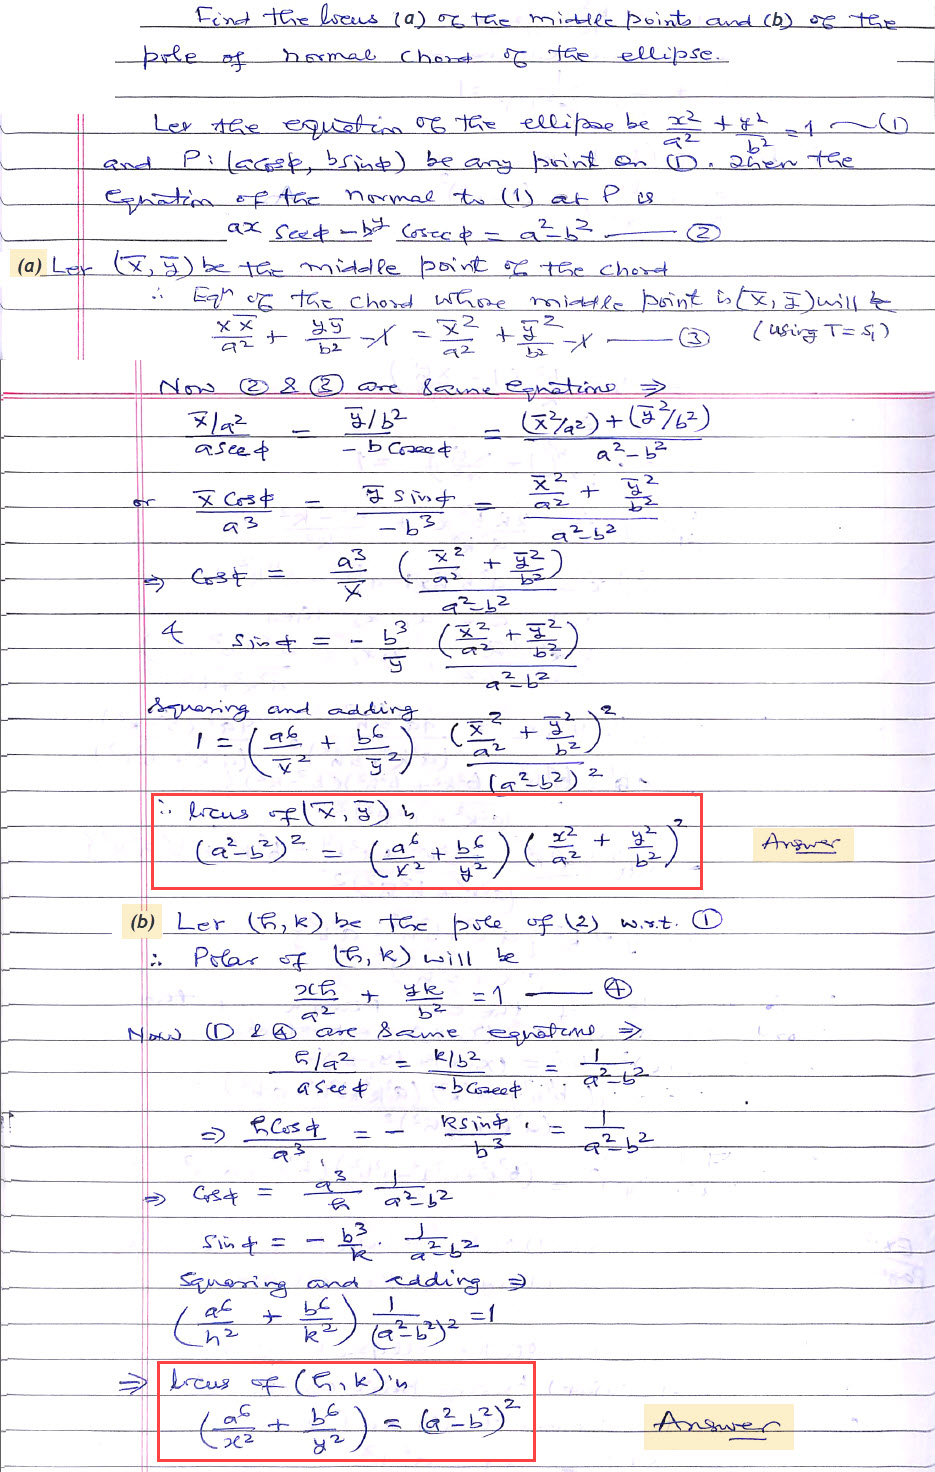 Find the locus (a) of the middle points and (b) of the
pole of normal chord of the ellipse.
Let the equation of the ellipse be x²/a² + y²/b² = 1 — (1)
and P: (acosφ, bsinφ) be any point on (1). Then the
equation of the normal to (1) at P is
ax secφ – by cosecφ = a²–b² — (2)
(a) Let (x̄, ȳ) be the middle point of the chord
∴ Eqⁿ of the chord whose middle point is (x̄, ȳ) will be
xx̄/a² + yȳ/b² – 1 = x̄²/a² + ȳ²/b² – 1 — (3) (using T = S₁)
Now (2) & (3) are same equations ⇒
(x̄/a²)/(a secφ) = (ȳ/b²)/(–b cosecφ) = ((x̄²/a²) + (ȳ²/b²))/(a²–b²)
or x̄ cosφ/a³ = ȳ sinφ/–b³ = (x̄²/a² + ȳ²/b²)/(a²–b²)
⇒ cosφ = a³/x̄ (x̄²/a² + ȳ²/b²)/(a²–b²)
& sinφ = – b³/ȳ (x̄²/a² + ȳ²/b²)/(a²–b²)
Squaring and adding
1 = (a⁶/x̄² + b⁶/ȳ²) (x̄²/a² + ȳ²/b²)²/(a²–b²)²
∴ locus of (x̄, ȳ) is
(a²–b²)² = (a⁶/x² + b⁶/y²) (x²/a² + y²/b²)² Answer
(b) Let (h, k) be the pole of (2) w.r.t. (1)
∴ Polar of (h, k) will be
xh/a² + yk/b² = 1 — (4)
Now (1) & (4) are same equations ⇒
(h/a²)/(a secφ) = (k/b²)/(–b cosecφ) = 1/(a²–b²)
⇒ h cosφ/a³ = – k sinφ/b³ = 1/(a²–b²)
⇒ cosφ = a³/h 1/(a²–b²)
sinφ = – b³/k . 1/(a²–b²)
Squaring and adding ⇒
(a⁶/h² + b⁶/k²) 1/(a²–b²)² = 1
⇒ locus of (h, k) is
(a⁶/x² + b⁶/y²) = (a²–b²)² Answer